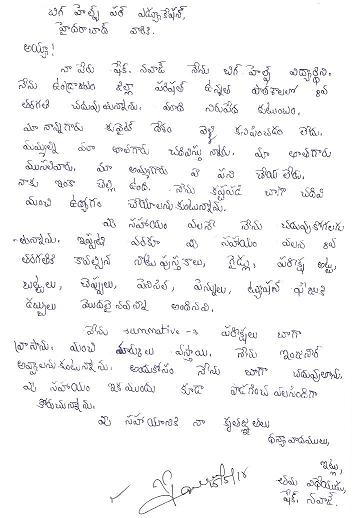 బిగ్ హెల్ప్ ఫర్ ఎడ్యుకేషన్,
హైదరాబాద్ వారికి.
అయ్యా!
నా పేరు షేక్. నవాజ్ నేను బిగ్ హెల్ప్ విద్యార్థిని.
నేను జిల్లా పరిషత్ ఉన్నత పాఠశాలలో
తరగతి చదువుతున్నాను. మాది నిరుపేద కుటుంబం.
మా నాన్నగారు కువైట్ దేశం వెళ్లి కనిపించడం లేదు.
మమ్మల్ని మా తాతగారు చదివిస్తున్నారు. మా తాతగారు
ముసలివారు. మా అమ్మగారు ఏ పని చేయలేదు.
నాకు ఇంకా చెల్లి ఉంది. నేను కష్టపడి బాగా చదివి
మంచి ఉద్యోగం చేయాలనుకుంటున్నాను.
మీ సహాయం వలన నేను చదువుకోగలుగు
తున్నాను. ఇప్పటి వరకూ మీ సహాయం వలన
తరగతికి కావల్సిన నోటు పుస్తకాలు, గైడ్లు, పరీక్ష అట్ట,
బట్టలు, చెప్పులు, పెన్సిల్, పెన్నులు, ట్యూషన్ ఫీజుకి
డబ్బులు మొదలైనవన్నీ అందినవి.
నేను summative-3 పరీక్షలు బాగా
వ్రాసాను. మంచి మార్కులు వస్తాయి. నేను
అవ్వాలనుకుంటున్నాను. అందుకోసం నేను బాగా చదువుతాను.
మీ సహాయం ఇక ముందు కూడా పొడగించవలసిందిగా
కోరుచున్నాను.
మీ సహాయానికి నా కృతజ్ఞతలు
ధన్యవాదములు,
ఇట్లు,
తమ విధేయుడు,
షేక్. నవాజ్.